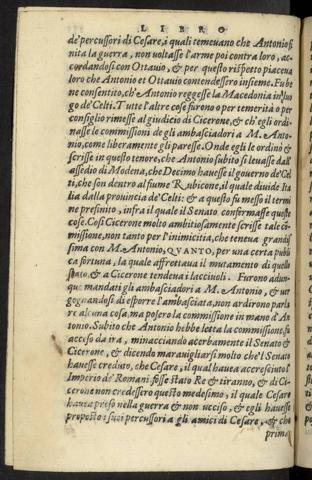 LIBRO
de' percussori di Cesare, i quali temeuano che Antonio fi
nita la guerra, non uoltasse l'arme poi contra loro, ac-
cordandosi con Ottauio, & per questo rispetto piaceua
loro che Antonio et Ottauio contendessero insieme. Fu be
ne consentito, ch'Antonio reggesse la Macedonia in luo
go de' Celti. Tutte l'altre cose furono o per temerità o per
consiglio rimesse al giudicio di Cicerone, & ch'egli ordi-
nasse le commissioni de gli ambasciadori a M. Anto-
nio, come liberamente gli paresse. Onde egli le ordinò &
scrisse in questo tenore, che Antonio subito si leuasse dall'
assedio di Modena, che Decimo hauesse il gouerno de' Cel
ti, che son dentro al fiume Rubicone, il quale diuide Ita
lia dalla prouincia de' Celti: & a questo fu messo il termi
ne prefinito, infra il quale il Senato confermasse queste
cose. Cosi Cicerone molto ambitiosamente scrisse tale cō
missione, non tanto per l'inimicitia, che teneua grandis
sima con M. Antonio, QVANTO, per una certa publi
ca fortuna, la quale affrettaua il mutamento di quello
stato, & a Cicerone tendeua i lacciuoli. Furono adun-
que mandati gli ambasciadori a M. Antonio, & uer
gognandosi di esporre l'ambasciata, non ardirono parla
re alcuna cosa, ma posero la commissione in mano d'An
tonio. Subito che Antonio hebbe letta la commissione, fu
acceso da ira, minacciando acerbamente il Senato &
Cicerone, & dicendo marauigliarsi molto che'l Senato
hauesse creduto, che Cesare, il qual haueua accresciuto l'
Imperio de' Romani fosse stato Re & tiranno, & di Ci-
cerone non credessero questo medesimo, il quale Cesare
haueua preso nella guerra & non ucciso, & egli hauesse
proposto i suoi percussori a gli amici di Cesare, & che
prima